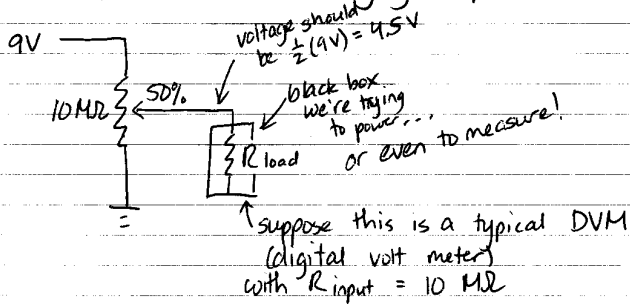 9V
voltage should
be ½(9V) = 4.5V
10MΩ
50%
black box
we're trying
to power...
or even to measure!
R load
suppose this is a typical DVM
(digital volt meter)
with R input = 10 MΩ